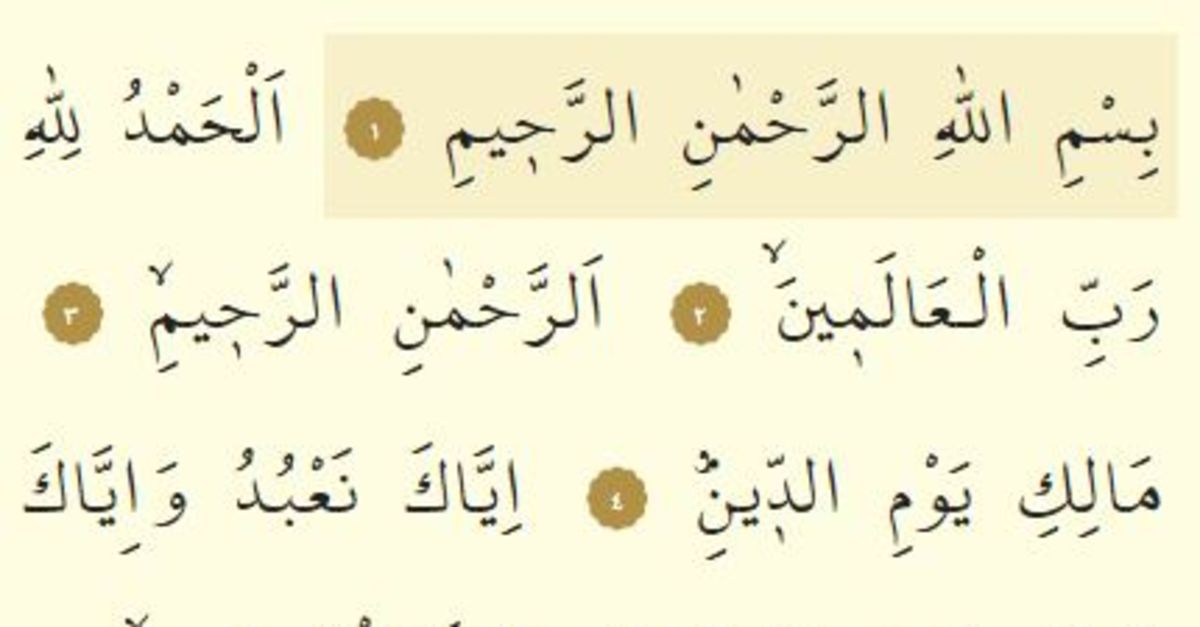 بِسْمِ اللّٰهِ الرَّحْمٰنِ الرَّح۪يمِ ١ اَلْحَمْدُ لِلّٰهِ
رَبِّ الْعَالَم۪ينَۙ ٢ اَلرَّحْمٰنِ الرَّح۪يمِۙ ٣
مَالِكِ يَوْمِ الدّ۪ينِۜ ٤ اِيَّاكَ نَعْبُدُ وَاِيَّاكَ